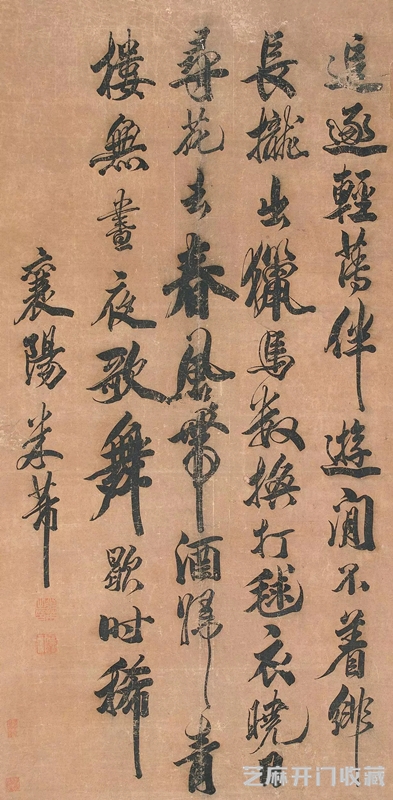 追逐輕薄伴遊閒不着緋
長攏出獵馬数換打毬衣曉日
尋花去春風帶酒歸青
樓無晝夜歌舞歇时稀
襄陽米芾
芝麻开门收藏